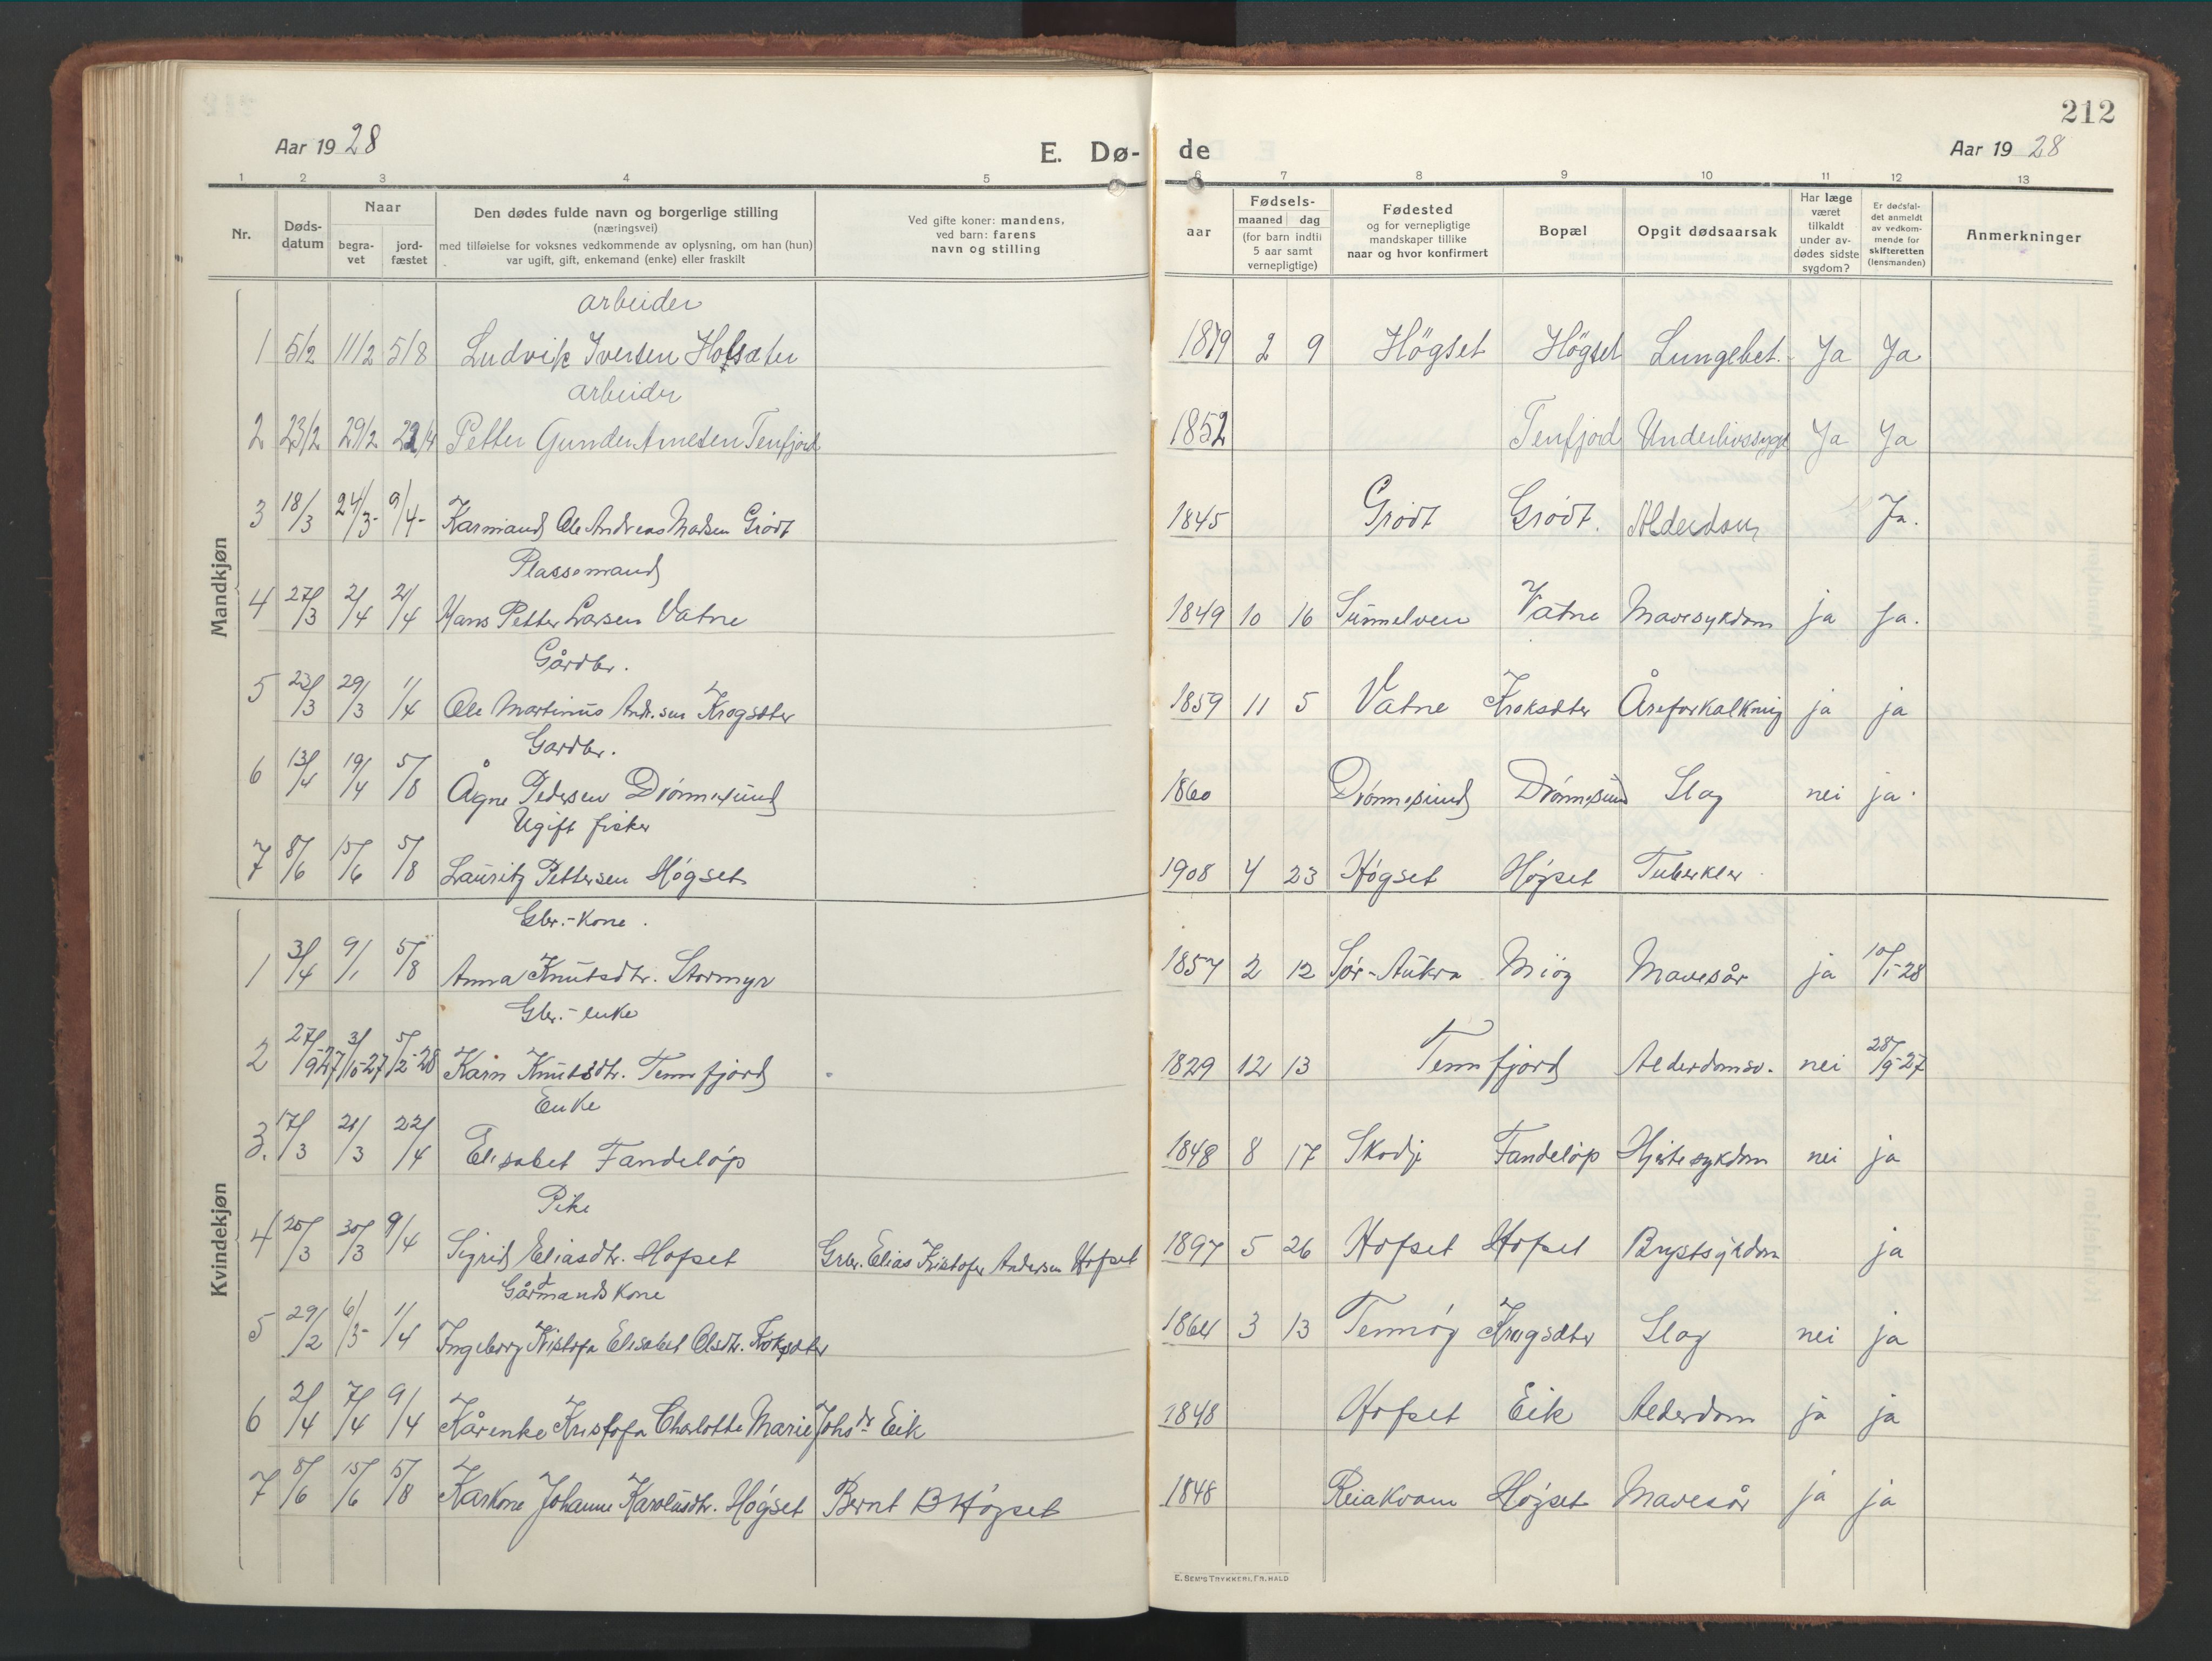 212
Aar 19 28
E. Dø- de
Aar 19 28
1 2 3 4 5 6 7 8 9 10 11 12 13
Nr.
Døds-datum
Naar
begra-vet
jord-fæstet
Den dødes fulde navn og borgerlige stilling
(næringsvei)
med tilføielse for voksnes vedkommende av oplysning, om han (hun)
var ugift, gift, enkemand (enke) eller fraskilt
Ved gifte koner: mandens,
ved barn: farens
navn og stilling
Fødsels-
aar
maaned dag
(for barn indtil
5 aar samt
vernepligtige)
Fødested
og for vernepligtige
mandskaper tillike
naar og hvor konfirmert
Bopæl
Opgit dødsaarsak
Har læge
været
tilkaldt
under av-
dødes sidste
sygdom?
Er dødsfal-
det anmeldt
av vedkom-
mende for
skifteretten
(lensmanden)
Anmerkninger
Mandkjøn
arbeider
1 5/2 11/2 5/8 Ludvik Iversen 1879 2 9 Högset Högset Lungebet. Ja Ja
arbeider
2 23/2 29/2 Petter Gunder Arnesen Tenfjord 1852 Tenfjord Underlivssyge Ja Ja
3 18/3 24/3- 9/4- Karmand Ole Andreas Madsen Grödt 1845 Grödt Grödt. Alderdom Ja.
Plassemand
4 27/3 2/4 2/4 Hans Petter Larsen Vatne 1849 10 16 Sunnelven Vatne Mavesykdom ja ja.
Gårdbr.
5 23/3 29/3 1/4 Ole Martinus Andr.sen Krogsæter 1859 11 5 Vatne Kroksæter Åreforkalkning ja ja
Gardbr.
6 13/4 19/4 5/8 Ågne Pedersen Drønnesund 1860 Drønnesund Drønnesund Slag nei ja.
Ugift fisker
7 8/6 15/6 5/8 Lauritz Pettersen Høgset 1908 4 23 Høgset Høgset Tuberkler
Kvindekjøn
Gbr.-kone.
1 3/4 9/1 5/8 Anna Knutsdtr. Stormyr 1857 2 12 Sør-Aukra Mavesår ja 10/1-28
Gbr.-enke
2 27/9-27 3/10-27 5/2-28 Karn Knutsdtr. Tennfjord 1829 12 13 Tennfjord Alderdomsv. nei 28/9-27
Enke
3. 17/3 21/3 22/4 Elisabet Fandeløp 1848 8 17 Skodje Fandeløp Hjertesykdom nei ja
Pike
4 25/3 30/3 9/4 Sigrid Eliasdtr. Hofset Grbr. Elias Kristofer Andersen Hofset 1897 5 26 Hofset Hofset Brystsykdom ja
Gårdmandskone
5 29/2 6/3- 1/4 Ingeborg Kristofa Elisabet Olsdtr. Kroksæter 1864 3 13 Tennøy Krogsæter Slag nei ja
6 2/4 7/4 9/4 Kårenke Kristofa Charlotte Marie Johsdr. Eik 1848 Hofset Eik Alderdom ja ja
7 8/6 15/6 5/8 Karkone Johanne Karolusdtr. Høgset Bernt B Høgset 1848 Reiakvam Høgset Mavesår ja ja
E. Sem's Trykkeri, Fr.hald